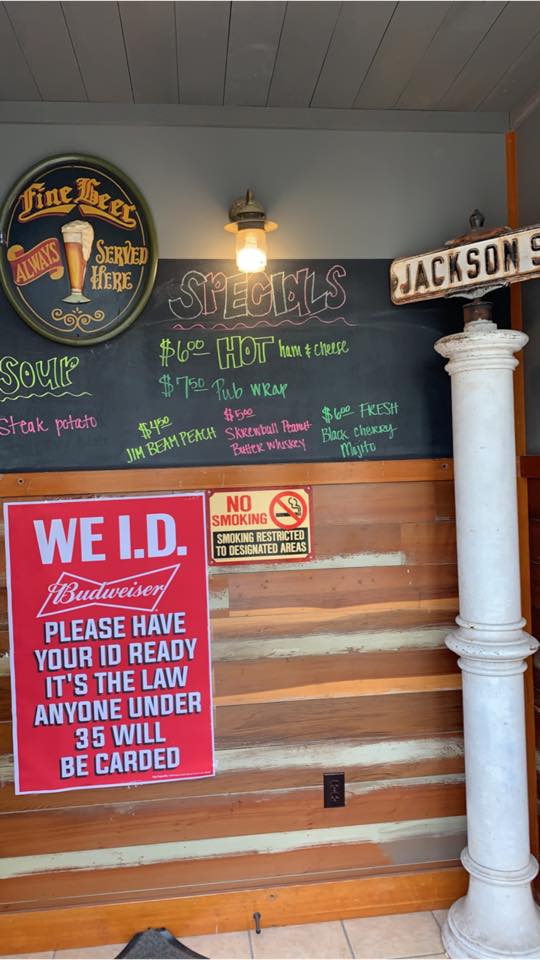 Fine Beer
ALWAYS
SERVED
HERE
JACKSON S
SPECIALS
$6.00 HOT ham & cheese
$7.50 Pub WRAP
SOUR
Steak potato
$4.50
JIM BEAM PEACH
$5.00
Skrewball Peanut
Butter whiskey
$6.00 FRESH
Black cherry
Mojito
WE I.D.
Budweiser
PLEASE HAVE
YOUR ID READY
IT'S THE LAW
ANYONE UNDER
35 WILL
BE CARDED
NO
SMOKING
SMOKING RESTRICTED
TO DESIGNATED AREAS